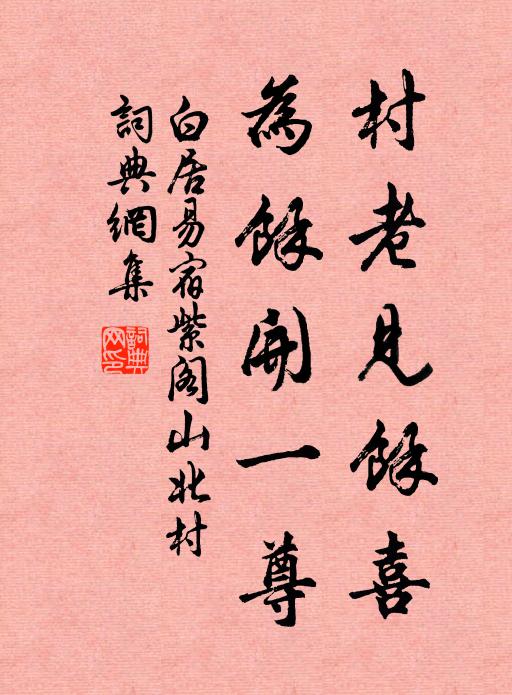 村老見餘喜
為餘開一尊
白居易宿紫阁山北村
詞典網集
詞典網印